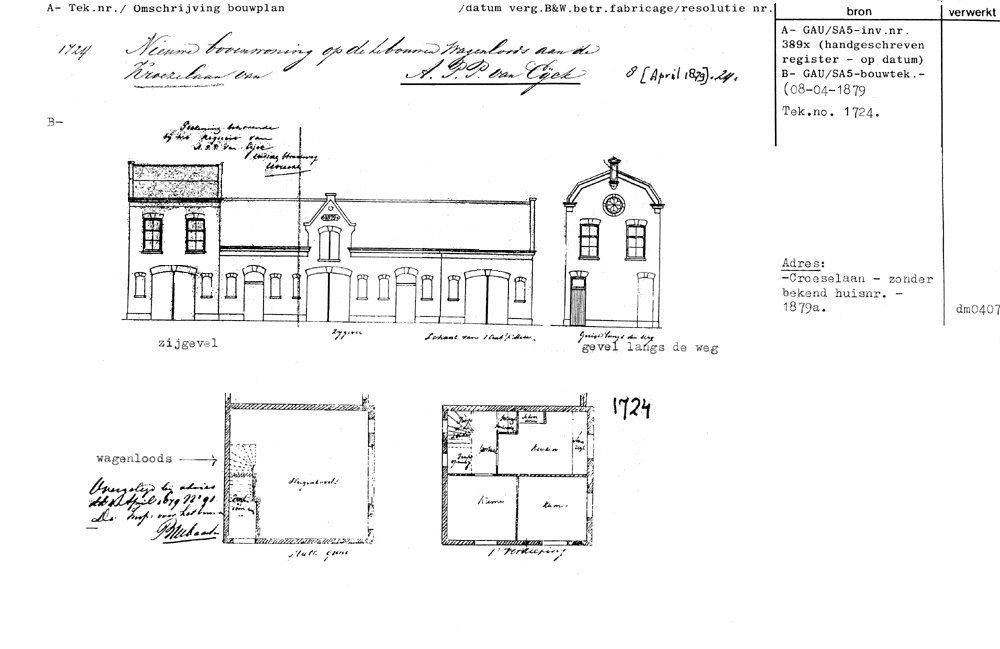 A- Tek.nr./ Omschrijving bouwplan
/datum verg.B&W.betr.fabricage/resolutie nr.
bron
verwerkt
1724 Nieuwe bovenwoning op de te bouwen Wagenloods aan de
Kroezelaan van A. P. P. van Eyck 8 [April 1879]. 24.
A- GAU/SA5-inv.nr.
389x (handgeschreven
register - op datum)
B- GAU/SA5-bouwtek.-
(08-04-1879
Tek.no. 1724.
B-
Teekening behoorende
bij het Request van
A. P. P. van Eijck
Adres:
-Croeselaan - zonder
bekend huisnr. -
1879a.
dm0407
Zijgevel
Schaal van 1 à
zijgevel
Gevel langs den weg
gevel langs de weg
1724
wagenloods
Wagenloods
Kamer
Kamer
Keuken
Overgelegd bij advies
dd April 1879 Nº 91
De Insp. van het
1e Verdieping